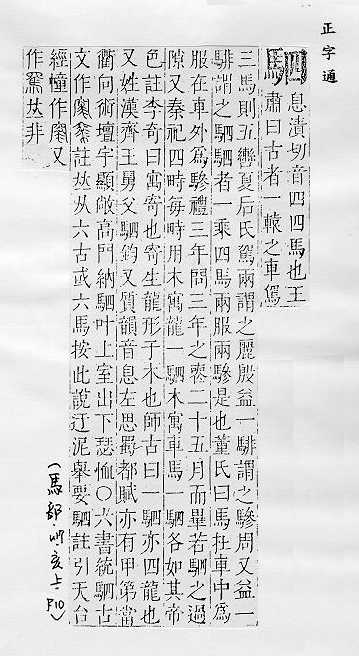 正字通
駟 息漬切音四四馬也王
肅曰古者一轅之車駕
三馬則五轡夏后氏駕兩謂之麗殷益一騑謂之驂周又益一
騑謂之駟駟者一乘四馬兩服兩驂是也董氏曰馬在車中爲
服在車外爲驂禮三年問三年之喪二十五月而畢若駟之過
隙又秦祀四畤每畤用木寓龍一駟木寓車馬一駟各如其帝
色註李奇曰寓寄也寄生龍形于木也師古曰一駟亦四龍也
又姓漢齊王舅父駟鈞又質韻音息左思蜀都賦亦有甲第當
衢向術壇宇顯敞高門納駟叶上室出下瑟恤○六書統駟古
文作𩢲𩢲註從从六古或六馬按此說迂泥舉要駟註引天台
經幢作𩢲又
作𩢲𠀤非
(馬部·明亥上·P10)